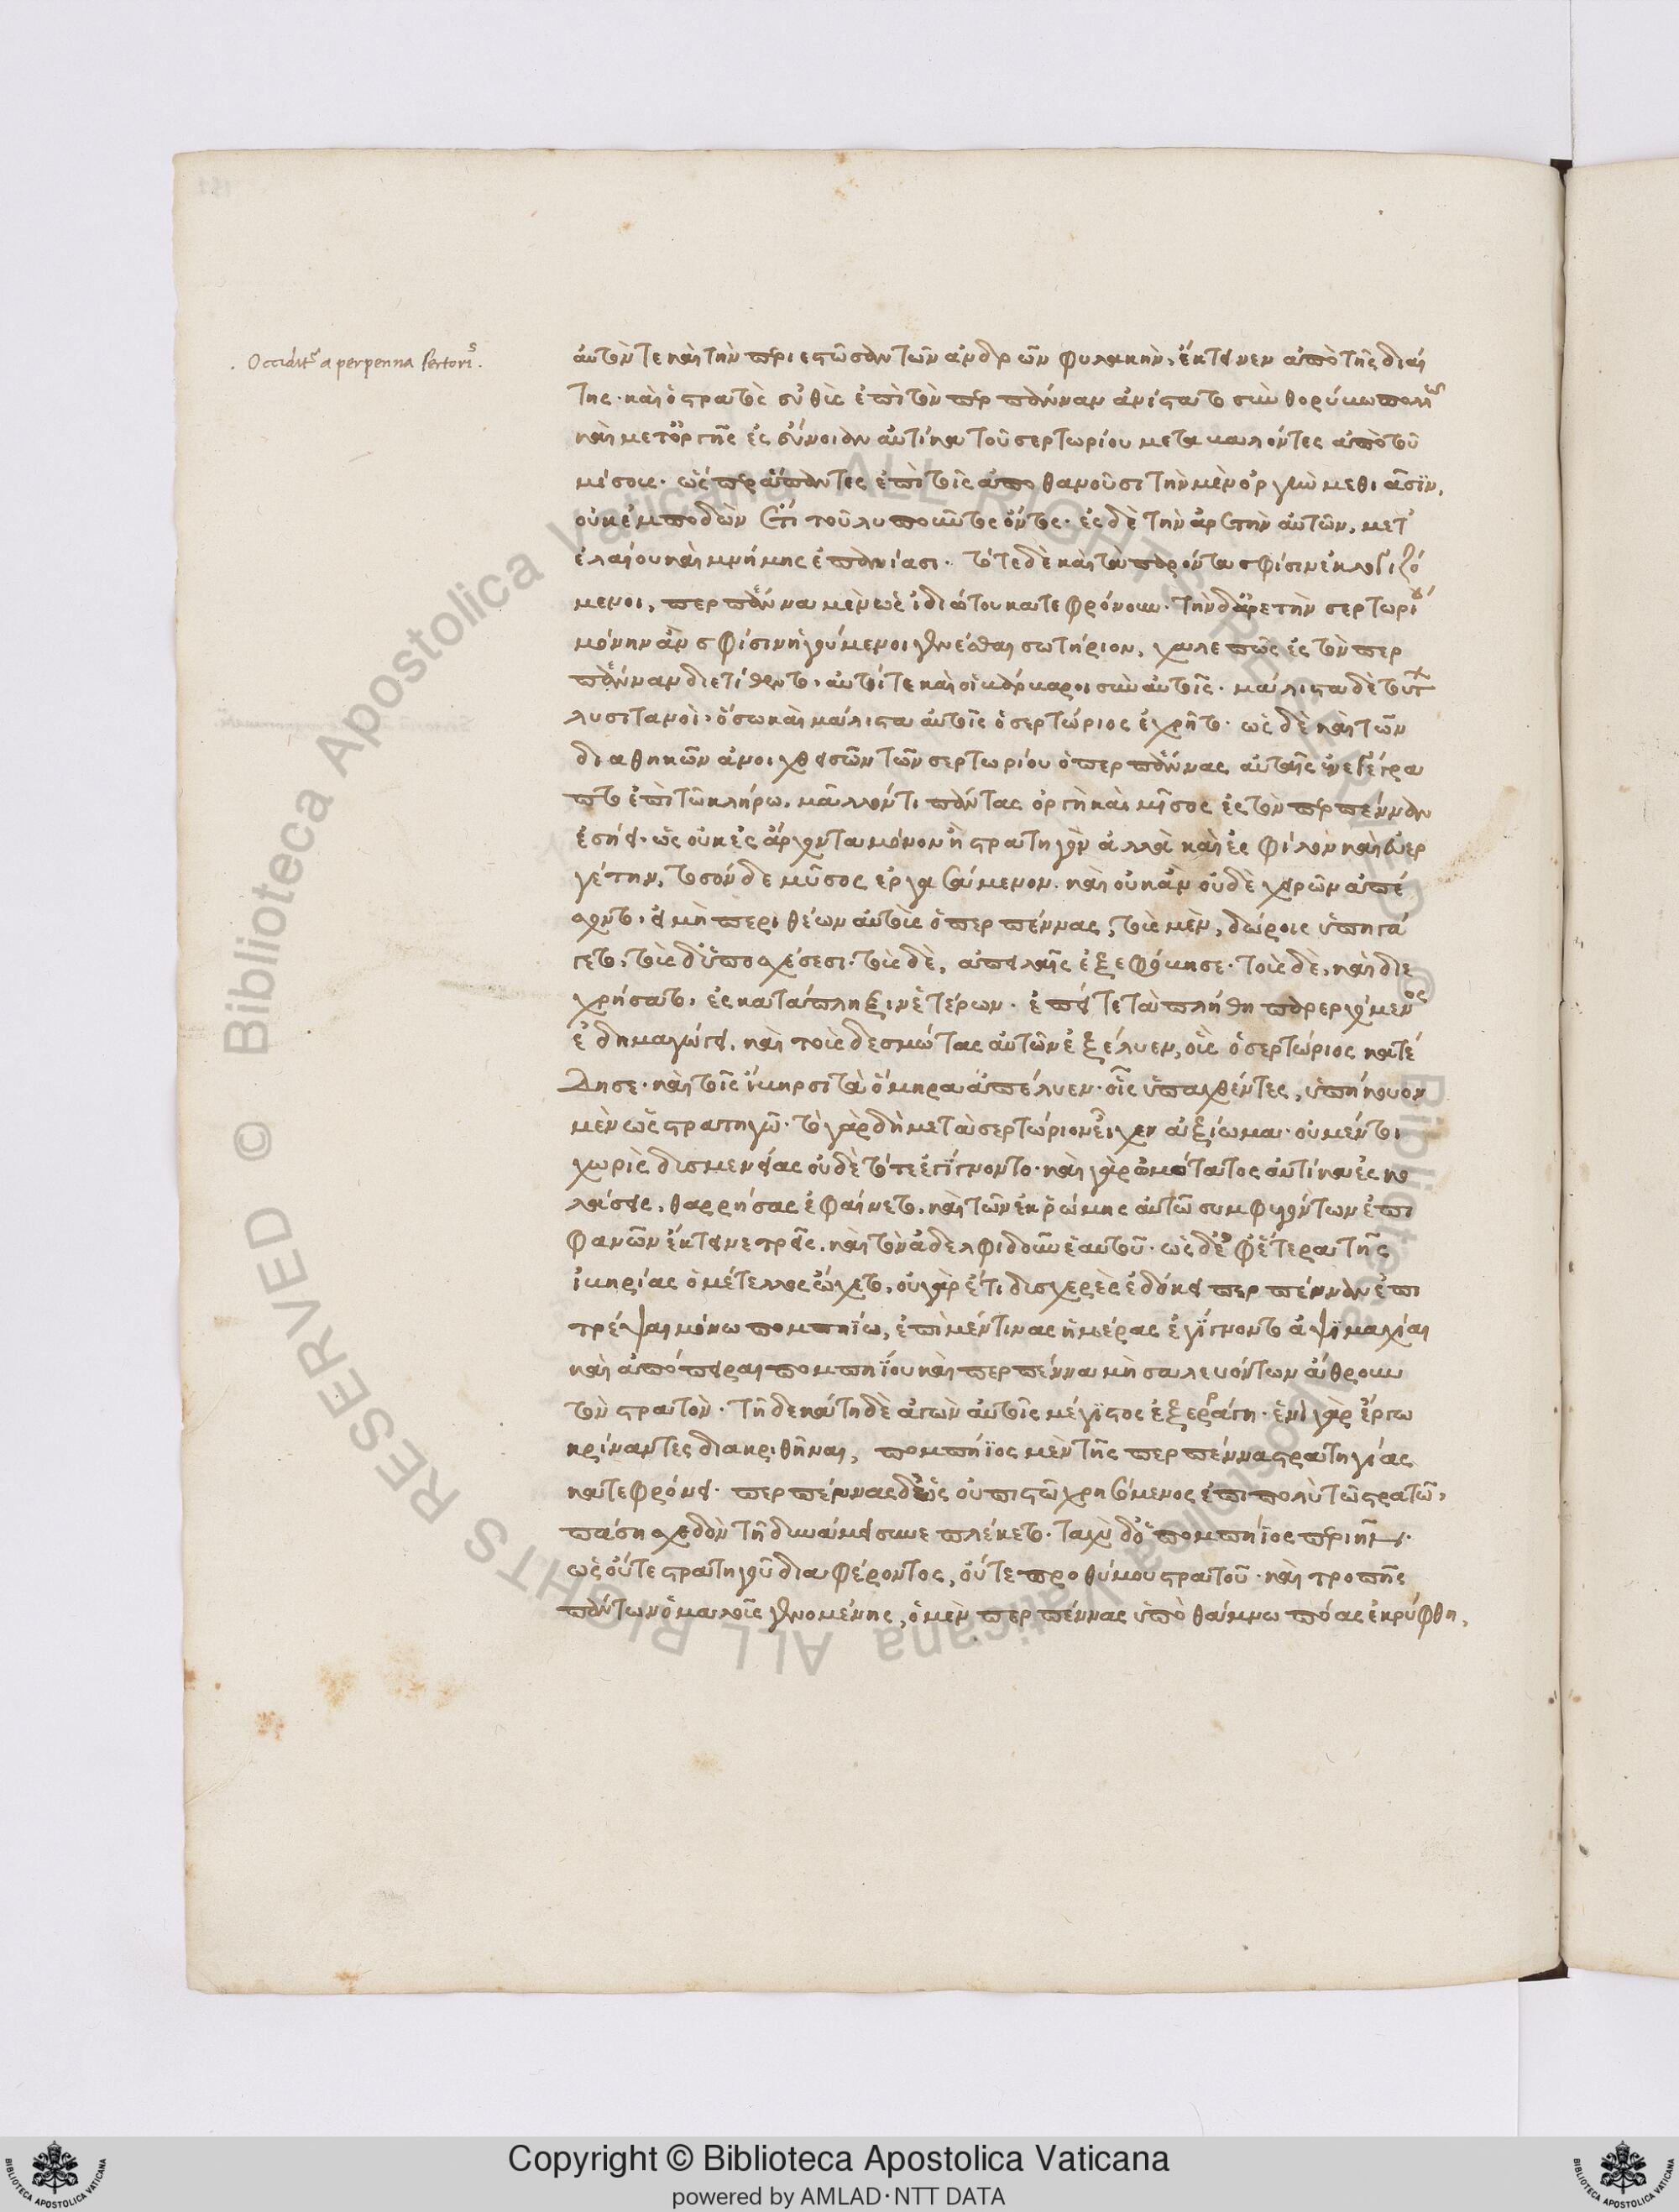 . Occidit͛ a perpenna Sertoriꝰ.
αὐτόν τε καὶ τὴν περιεστῶσαν τῶν ἀνδρῶν φυλακὴν, ἔκτεινεν ἀπὸ τῆς διαί
της. καὶ ὁ στρατὸς εὐθὺς ἐπὶ τὸν περπένναν ἀνίστατο σὺν θορύβω πολλῶ
καὶ μετ' ὀργῆς ἐς εὔνοιαν αὐτίκα τοῦ σερτωρίου μεταβαλόντες ἀπὸ τοῦ
μίσους. ὡς περ ἅπαντες ἐπὶ τοῖς ἀποθανοῦσι τὴν μὲν ὀργὴν μεθιᾶσϊν,
οὐκ ἐμποδὼν ἔτι τοῦ λυποῦντος ὄντος. ἐς δὲ τὴν ἀρετὴν αὐτῶν, μετ'
ἐλαίου καὶ μνήμης ἐπανίασι. τότε δὲ καὶ τὰ παρόντα σφίσιν ἐκλογιζό
μενοι, περπέννα μὲν ὡς ἰδιώτου κατεφρόνουν. τὴν δ' ἀρετὴν σερτωρίου
μόνην ἂν σφίσιν ἡγούμενοι γενέσθαι σωτήριον, χαλεπῶς ἐς τὸν περ
πένναν διετίθεντο. αὐτοί τε καὶ οἱ βάρβαροι σὺν αὐτοῖς. μάλιστα δὲ τούτων
λυσιτανοὶ. ὅσω καὶ μάλιστα αὐτοῖς ὁ σερτώριος ἐχρῆτο. ὡς δὲ καὶ τῶν
διαθηκῶν ἀνοιχθεισῶν τῶν σερτωρίου ὁ περπέννας αὐταῖς ἐνεγέγρα
πτο ἐπὶ τῶ κλήρω, μᾶλλόν τι πάντας ὀργὴ καὶ μῖσος ἐς τὸν περπένναν
ἐσήει. ὡς οὐκ ἐς ἄρχοντα μόνον ἢ στρατηγὸν ἀλλὰ καὶ ἐς φίλον καὶ εὐερ
γέτην, τοσόνδε μῦσος εἰργασάμενον. καὶ οὐκ ἂν οὐδὲ χειρῶν ἀπέ
σχοντο. εἰ μὴ περιθέων αὐτοὺς ὁ περπέννας, τοὺς μὲν, δώροις ὑπηγά
γετο. τοὺς δ' ὑποσχέσεσι. τοὺς δὲ, ἀπειλαῖς ἐξεφόβησε. τοὺς δὲ, καὶ διε
χρήσατο. ἐς κατάπληξιν ἑτέρων. ἐπεί τε τὰ πλήθη παρερχόμενος
ἐδημαγώγει, καὶ τοὺς δεσμώτας αὐτῶν ἐξέλυεν, οὓς ὁ σερτώριος κατέ
δησε. καὶ τοῖς ἴβηρσι τὰ ὅμηρα ἀπέλυεν. οἷς ὑπαχθέντες, ὑπήκουον
μὲν ὡς στρατηγῶ. τὸ γὰρ δὴ μετὰ σερτώριον εἶχεν ἀξίωμα. οὐ μέντοι
χωρὶς δυσμενείας οὐδὲ τότε ἐγίγνοντο. καὶ γὰρ ὠμότατος αὐτίκα ἐς κο
λάσεις, θαρρήσας ἐφαίνετο. καὶ τῶν ἐκ ῥώμης αὐτῶ συμφυγόντων ἐπι
φανῶν ἔκτεινε τρεῖς. καὶ τὸν ἀδελφιδοῦν ἑαυτοῦ. ὡς δ' ἐφ' ἕτερα τῆς
ἰβηρίας ὁ μέτελλος ὤχετο, οὐ γὰρ ἔτι δυσχερὲς ἐδόκει περπένναν ἐπι
τρέψαι μόνω πομπηΐω, ἐπὶ μέν τινας ἡμέρας ἐγίγνοντο ἁψϊμαχίαι
καὶ ἀπόπειραι πομπηΐου καὶ περπέννα μὴ σαλευόντων ἄθρουν
τὸν στρατὸν. τῆ δεκάτη δὲ ἀγὼν αὐτοῖς μέγϊστος ἐξερράγη. ἑνὶ γὰρ ἔργω
κρίναντες διακριθῆναι, πομπήϊος μὲν τῆς περπέννα στρατηγίας
κατεφρόνει. περπέννας δ' ὡς οὐ πιστῶ χρησόμενος ἐπὶ πολὺ τῶ στρατῶ,
πάση σχεδὸν τῆ δυνάμει συνεπλέκετο. ταχὺ δ' ὁ πομπήϊος περιῆν.
ὡς οὔτε στρατηγοῦ διαφέροντος, οὔτε προθύμου στρατοῦ. καὶ τροπῆς
πάντων ὁμαλοῖς γενομένης, ὁ μὲν περπέννας ὑπὸ θάμνω πόας ἐκρύφθη,